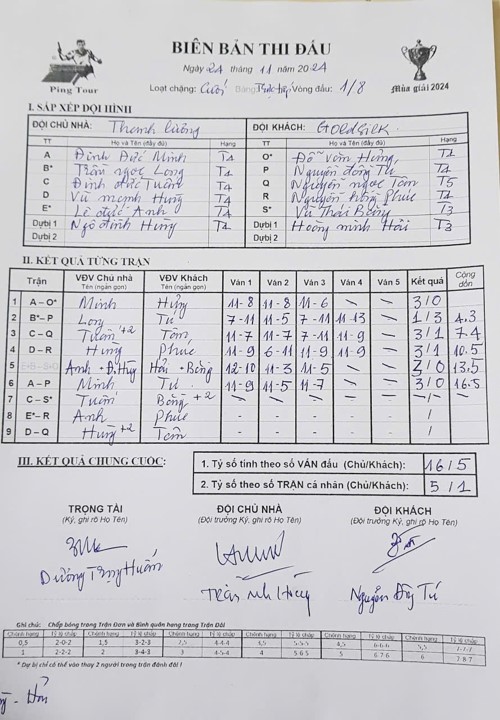 BIÊN BẢN THI ĐẤU
Ngày 24 tháng 11 năm 2024
Ping Tour
Loạt chặng: Cuối Bảng: Vòng đấu: 1/8
Mùa giải 2024
I. SẮP XẾP ĐỘI HÌNH
ĐỘI CHỦ NHÀ: Thanh Lương ĐỘI KHÁCH: Goldsilk
TT Họ và Tên (đầy đủ) Hạng TT Họ và Tên (đầy đủ) Hạng
A Đinh Đức Minh T4 O* Đỗ Văn Hưng T4
B* Trần Ngọc Long T4 P Nguyễn Đông Tư T4
C Đinh Đức Tuấn T4 Q Nguyễn Ngọc Tâm T5
D Vũ Mạnh Hưng T4 R Nguyễn Hồng Phúc T4
E* Lê Đức Anh T4 S* Vũ Thái Bằng T3
Dự bị 1 Ngô Đình Hưng T4 Dự bị 1 Hoàng Minh Hải T3
Dự bị 2 Dự bị 2
II. KẾT QUẢ TỪNG TRẬN
Trận VĐV Chủ nhà VĐV Khách Ván 1 Ván 2 Ván 3 Ván 4 Ván 5 Kết quả Cộng dồn
Tên (ngắn gọn) Tên (ngắn gọn)
1 A – O* Minh Hưng 11-8 11-8 11-6 – – 3/0
2 B* – P Long Tư 7-11 11-5 7-11 11-13 – 1/3 4.3
3 C – Q Tuấn +2 Tâm 11-7 11-7 7-11 11-9 – 3/1 7.4
4 D – R Hưng Phúc 11-9 6-11 11-9 11-9 – 3/1 10.5
5 Anh + Đ.Hưng Hải + Bằng 12-10 11-3 11-5 – – 3/0 13.5
6 A – P Minh Tư 11-9 11-5 11-7 – – 3/0 16.5
7 C – S* Tuấn Bằng +2 – – – – – -/-
8 E* – R Anh Phúc - - - - - /
9 D – Q Hưng +2 Tâm - - - - - /
III. KẾT QUẢ CHUNG CUỘC:
1. Tỷ số tính theo số VÁN đấu (Chủ/Khách): 16/5
2. Tỷ số theo số TRẬN cá nhân (Chủ/Khách): 5/1
TRỌNG TÀI ĐỘI CHỦ NHÀ ĐỘI KHÁCH
(Ký, ghi rõ Họ Tên) (Đội trưởng Ký, ghi rõ Họ Tên) (Đội trưởng Ký, ghi rõ Họ Tên)
Dương Huấn Trần Hùng Nguyễn Tú
Ghi chú: Chấp bóng trong Trận Đơn và Bình quân hạng trong Trận Đôi
Chênh hạng Tỷ lệ chấp Chênh hạng Tỷ lệ chấp Chênh hạng Tỷ lệ chấp
0,5 2-0-2 1,5 3-2-3 2,5 4-4-4 3,5 5-5-5 4,5 6-6-6 5,5 7-7-7
1 2-2-2 2 3-4-3 3 4-5-4 4 5-6-5 5 6-7-6 6 7-8-7
* Dự bị chỉ có thể vào thay 2 người trong trận đánh đôi !